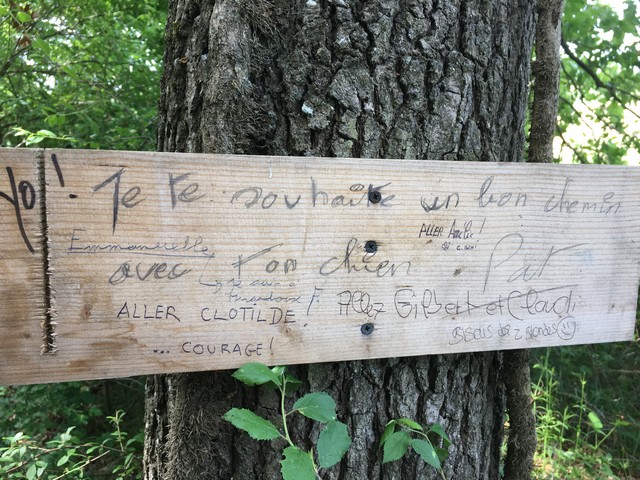 yo!
Je te souhaite un bon chemin
ALLER
Emmanuelle
avec ton chien. Pat
ALLER CLOTILDE!
Allez Gilbert et Claudi
... COURAGE!
BISOUS des 2 Blondes